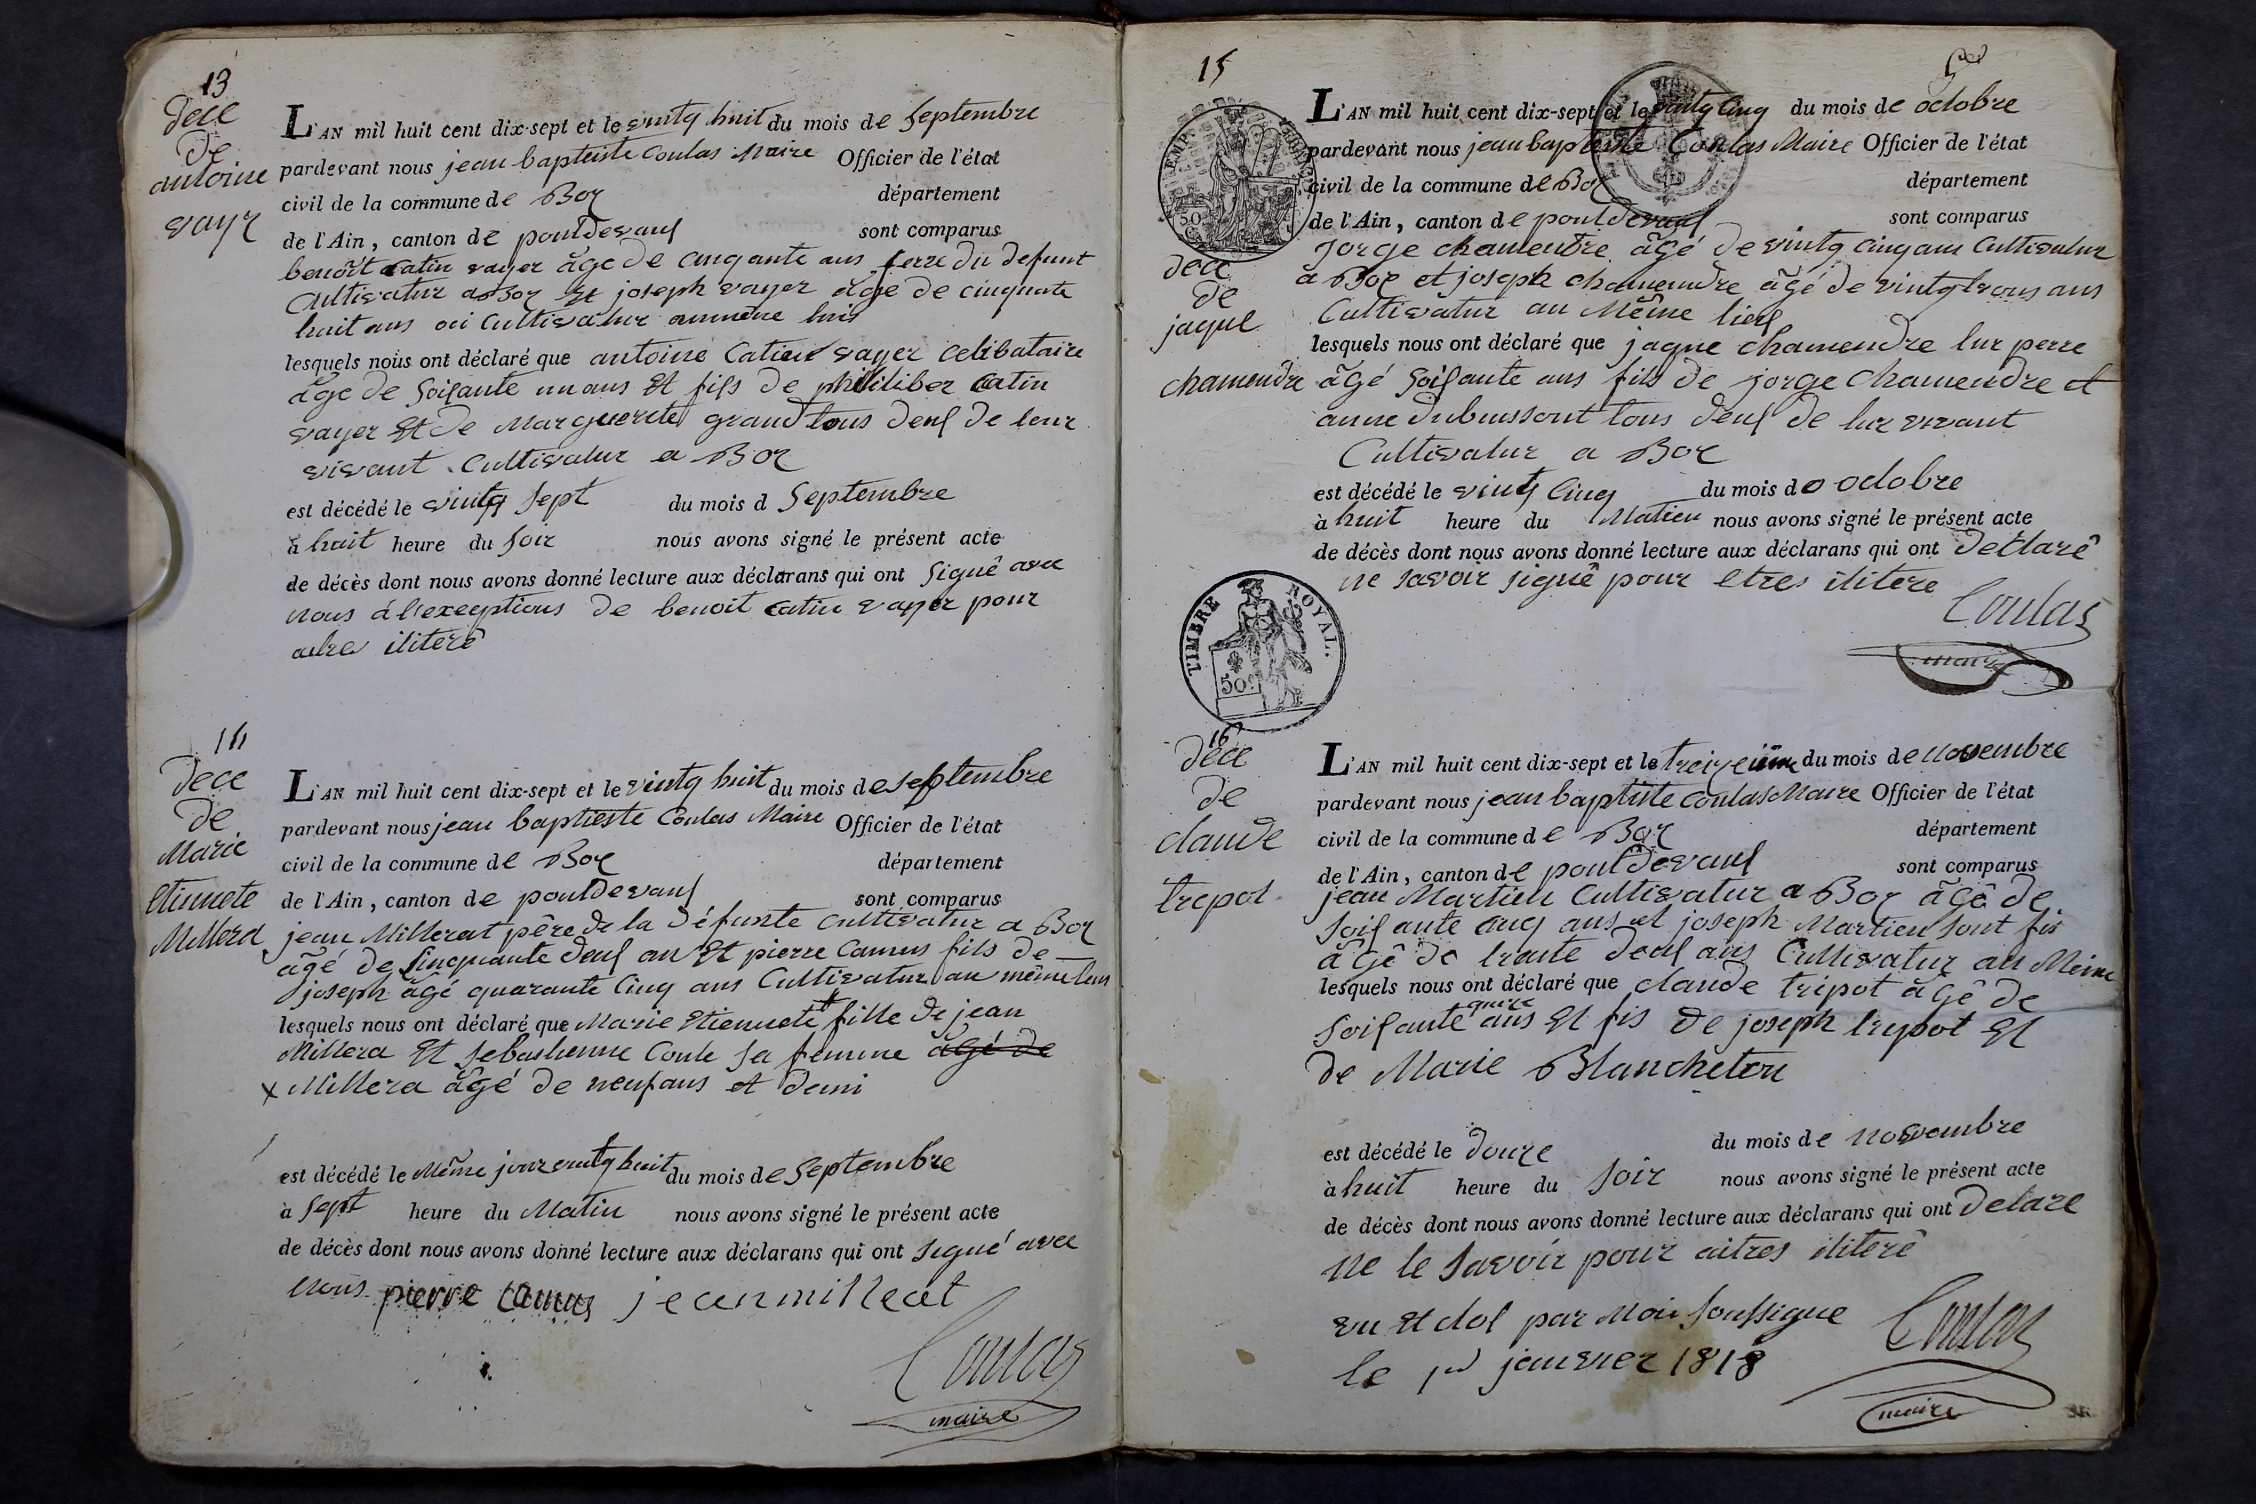 13
dece
de
antoine
vayr
L'AN mil huit cent dix-sept et le vintg huit du mois de septembre
pardevant nous jean baptiste Coulas Maire Officier de l'état
civil de la commune de Boz département
de l'Ain, canton de pontdevaus sont comparus
benoît catin vayer âge de cinqante ans ferre du defunt
Cultivatur a Boz et joseph vayer âge de cinquante
huit ans ausi Cultivatur aumême lius
lesquels nous ont déclaré que antoine Catin vayer celibataire
âge de soisante un ans et fils de philiber catin
vayer et de Marguerite grand tous deus de leur
vivant Cultivatur a Boz
est décédé le vintg sept du mois d Septembre
à huit heure du soir nous avons signé le présent acte
de décès dont nous avons donné lecture aux déclarans qui ont signê avec
nous à l'exceptions de benoit catin vayer pour
aitres ilitere
14
dece
de
Marie
etiennete
Millera
L'AN mil huit cent dix-sept et le vintg huit du mois de septembre
pardevant nous jean baptieste Coulas Maire Officier de l'état
civil de la commune de Boz département
de l'Ain, canton de pontdevaus sont comparus
jean Millerat père de la défunte cultivatur a Boz
âgé de sinquante deus an et pierre Camus fils de
joseph âgé quarante cinq ans Cultivatur au même lius
lesquels nous ont déclaré que Marie Etiennete x fille de jean
Millera et sebastienne Conte sa femme âgé de
x Millera âgé de neuf ans et demi
est décédé le Même jour vintg huit du mois de septembre
à sept heure du Matin nous avons signé le présent acte
de décès dont nous avons donné lecture aux déclarans qui ont signé avec
nous pierre Camus jean milleat
Coulas
maire
15
TIMBRE ROYAL.
50
dece
de
jaque
chamendre
L'AN mil huit cent dix-sept et le vintg cinq du mois de octobre
pardevant nous jean baptiste Coulas Maire Officier de l'état
civil de la commune de Boz département
de l'Ain, canton de pontdevaus sont comparus
jorge chamendre âgé de vintg cinq ans Cultivatur
a Boz et joseph chamendre âgé de vintg trous ans
Cultivatur au Même lieus
lesquels nous ont déclaré que jaque chamendre lur perre
âgé soisante ans fils de jorge chamendre et
anne dubuissont tous deus de lur vivant
Cultivatur a Boz
est décédé le vintg cinq du mois de octobre
à huit heure du Matien nous avons signé le présent acte
de décès dont nous avons donné lecture aux déclarans qui ont declarê
ne savoir signê pour etres ilitere
Coulas
maire
16
dece
de
claude
trepot
L'AN mil huit cent dix-sept et le treizeime du mois de novembre
pardevant nous jean baptiste Coulas Maire Officier de l'état
civil de la commune de Boz département
de l'Ain, canton de pontdevaus sont comparus
jean Martien Cultivatur a Boz âgê de
soisante cinq ans et joseph Martien sont fis
âgê de trante deus ans Cultivatur au Meime
lesquels nous ont déclaré que claude tripot âgê de
soisante ans et fis de joseph tripot et
de Marie Blancheton
est décédé le douze du mois de novembre
à huit heure du soir nous avons signé le présent acte
de décès dont nous avons donné lecture aux déclarans qui ont delare
ne le savoir pour aitres iliterê
vu et clos par Moi soussigne Coulas
le 1er janvier 1818
maire